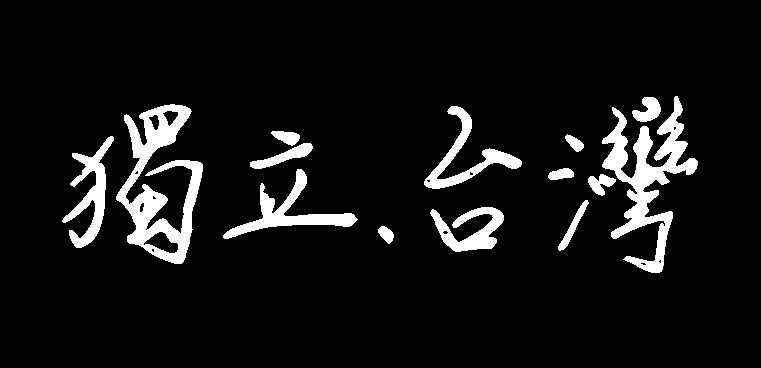 獨立、台灣